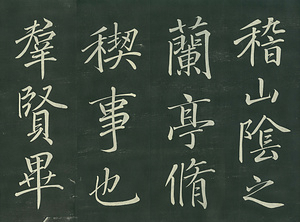 稽山陰之
蘭亭脩
稧事也
羣賢畢